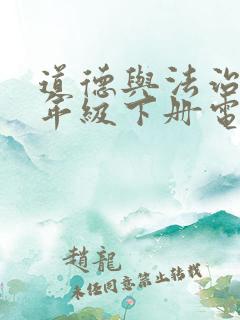 道德與法治
年級下册電
趙龍
未任同意禁止转载